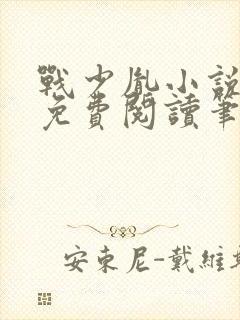 戰少胤小說
免費閱讀筆
安東尼-戴維斯